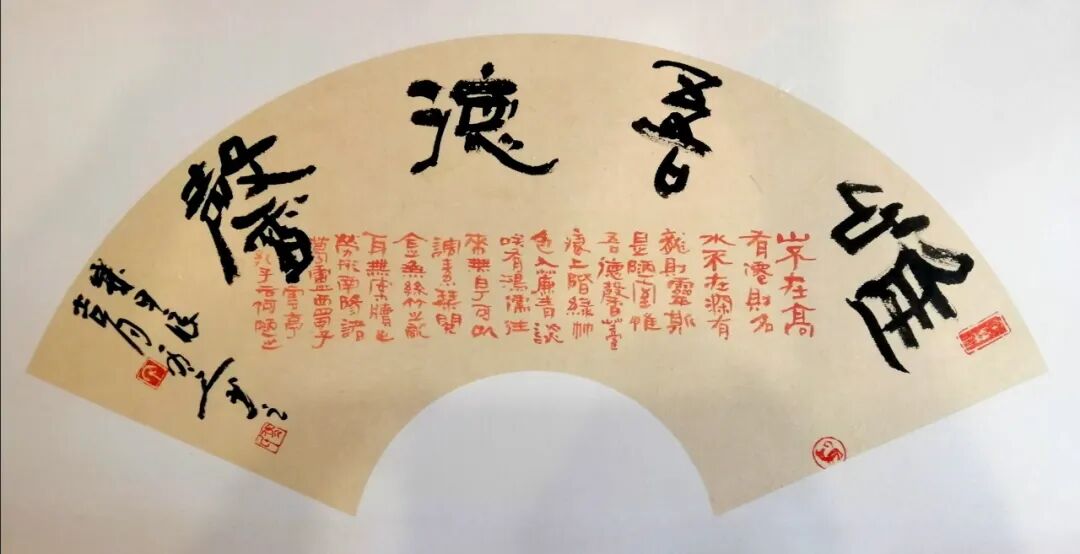 惟吾德馨
山不在高
有僊則名
水不在深有
龍則靈斯
是陋室惟
吾德馨苔
痕上階綠艸
色入簾青談
咲有鴻儒往
來無白丁可以
調素琴閱
金無絲竹之亂
耳無案牘之
勞形南陽諸
葛廬西蜀子
雲亭
孔子云何陋之